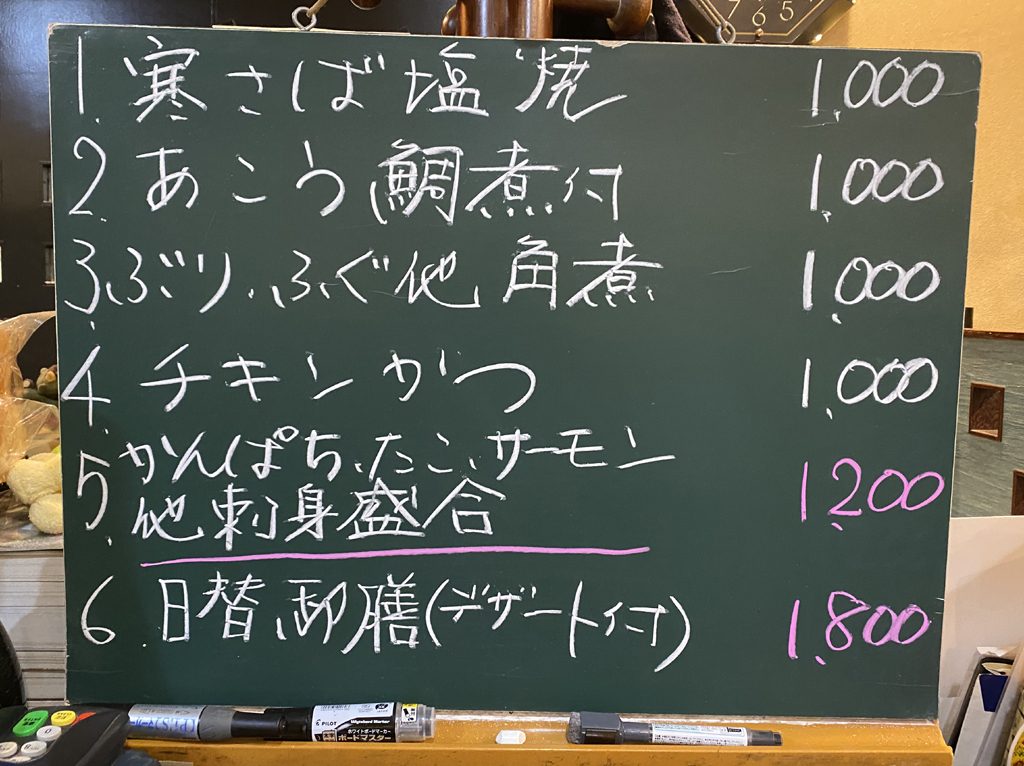 1. 寒さば塩焼 1,000
2. あこう鯛煮付 1,000
3. ぶり、ふぐ他 角煮 1,000
4. チキンかつ 1,000
5. かんぱち、たこ、サーモン
他刺身盛合 1,200
6. 日替御膳(デザート付) 1,800
7 6 5
PILOT Wyteboard Marker
ホワイトボードマーカー
ボードマスター